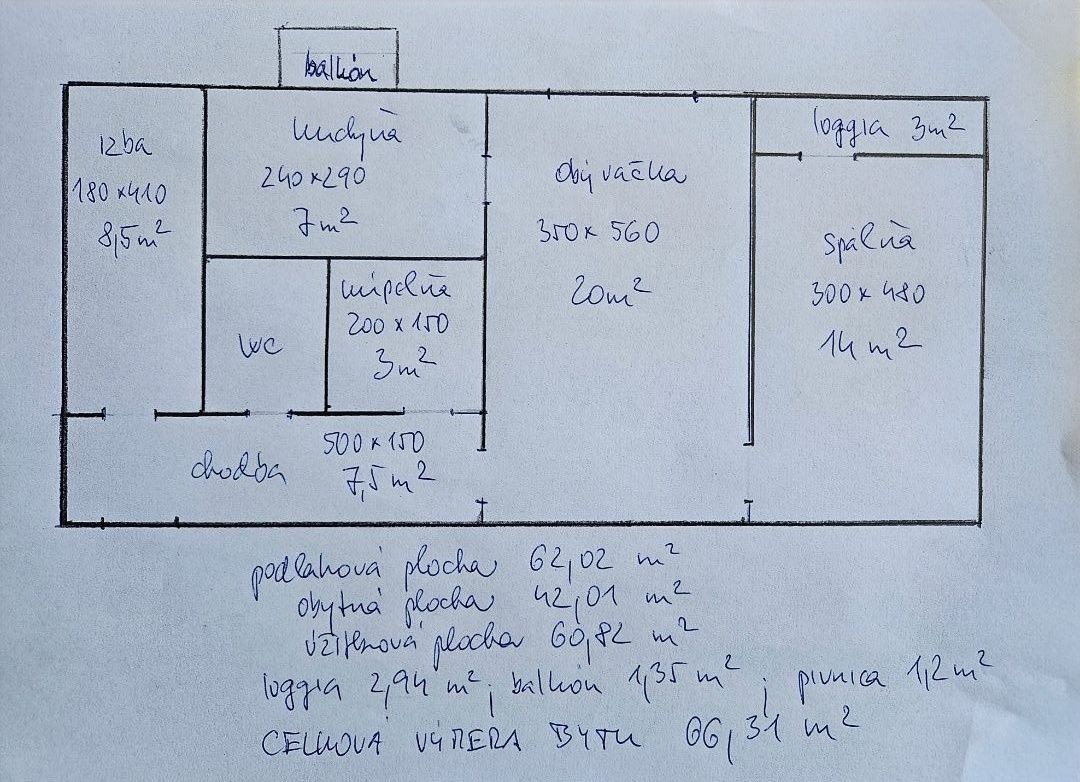 balkón
izba
180 x 410
8,5 m²
kuchyňa
240 x 290
7 m²
obývačka
350 x 560
20 m²
loggia 3 m²
spálňa
300 x 480
14 m²
WC
kúpelňa
200 x 150
3 m²
chodba
500 x 150
7,5 m²
podlahová plocha 62,02 m²
obytná plocha 42,01 m²
úžitková plocha 60,82 m²
loggia 2,94 m²; balkón 1,35 m²; pivnica 1,2 m²
CELKOVÁ VÝMERA BYTU 66,31 m²